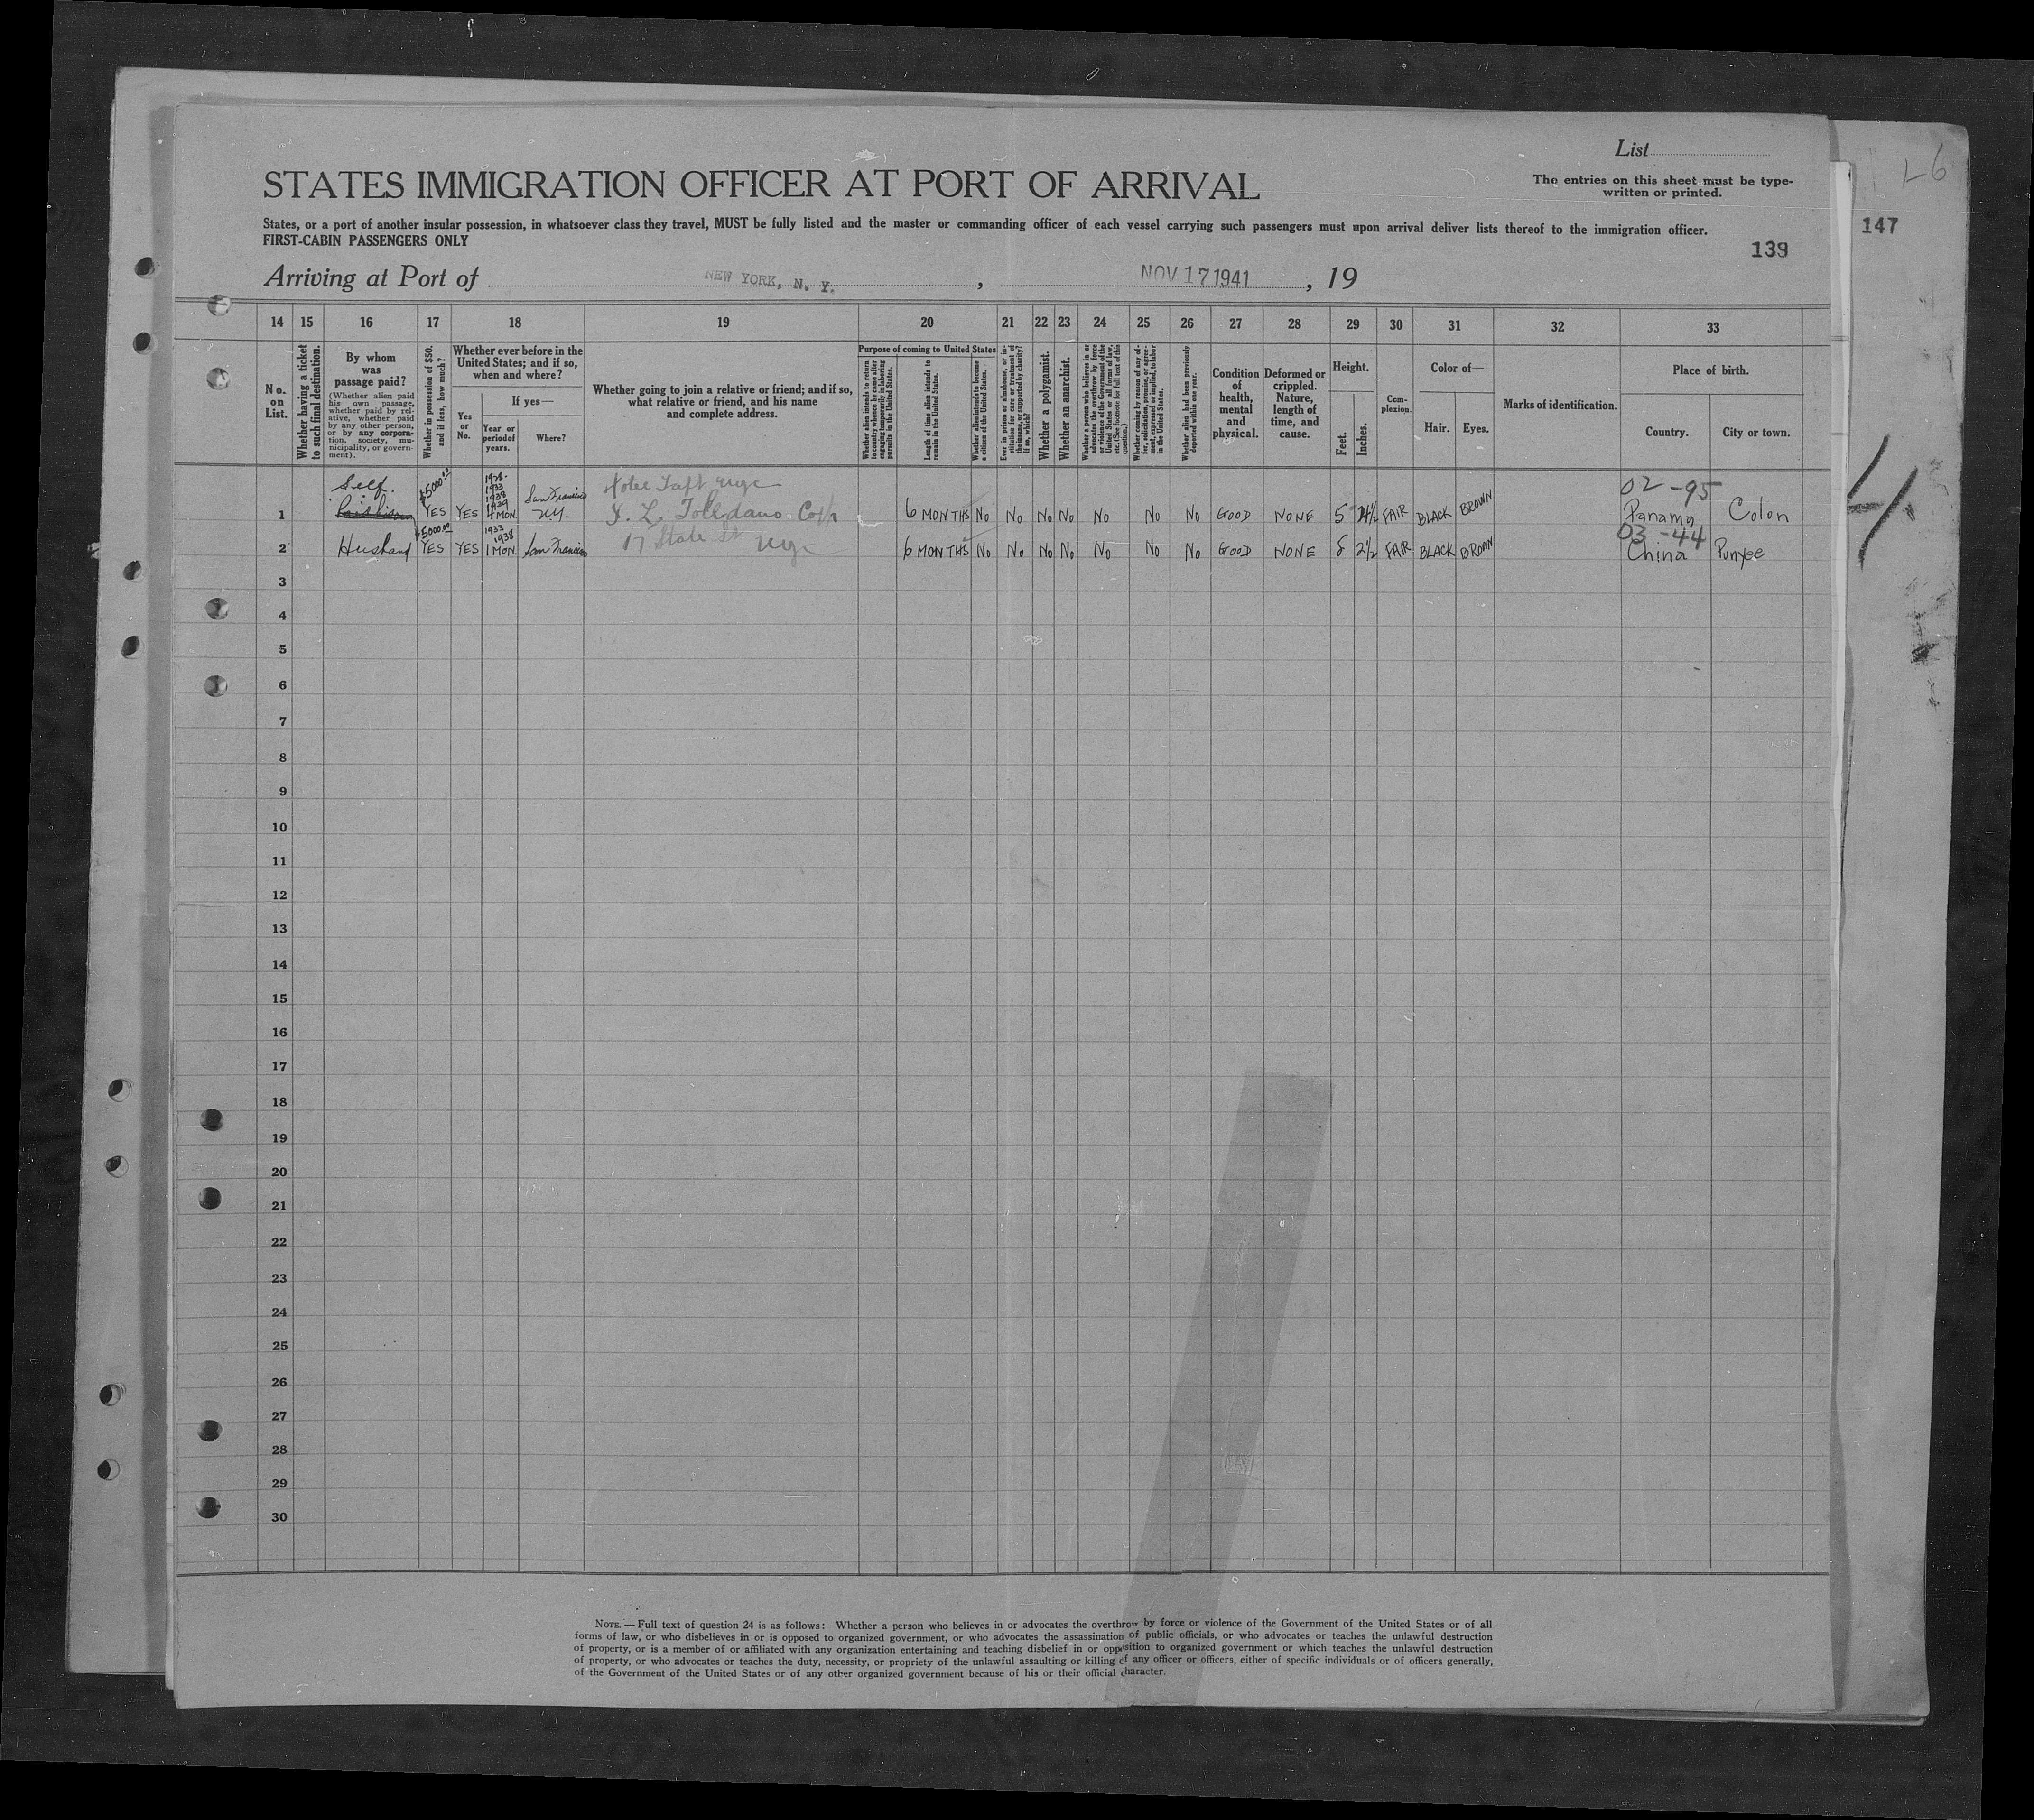 L6
List
The entries on this sheet must be type-
written or printed.
STATES IMMIGRATION OFFICER AT PORT OF ARRIVAL
States, or a port of another insular possession, in whatsoever class they travel, MUST be fully listed and the master or commanding officer of each vessel carrying such passengers must upon arrival deliver lists thereof to the immigration officer.
FIRST-CABIN PASSENGERS ONLY
147
139
Arriving at Port of NEW YORK, N. Y. , NOV 17 1941 , 19
14 15 16 17 18 19 20 21 22 23 24 25 26 27 28 29 30 31 32 33
No. on List.
Whether having a ticket to such final destination.
By whom was passage paid?
(Whether alien paid his own passage, whether paid by relative, whether paid by any other person, or by any corporation, society, municipality, or government).
Whether in possession of $50, and if less, how much?
Whether ever before in the United States; and if so, when and where?
Yes or No.
If yes—
Year or period of years.
Where?
Whether going to join a relative or friend; and if so, what relative or friend, and his name and complete address.
Purpose of coming to United States
Whether alien intends to return to country whence he came after engaging temporarily in laboring pursuits in the United States.
Length of time alien intends to remain in the United States.
Whether alien intends to become a citizen of the United States.
Ever in prison or almshouse, or institution for care or treatment of the insane, or supported by charity? If so, which?
Whether a polygamist.
Whether an anarchist.
Whether a person who believes in or advocates the overthrow by force or violence of the Government of the United States or all forms of law, etc. (See footnote for full text of this question.)
Whether coming by reason of any offer, solicitation, promise, or agreement, expressed or implied, to labor in the United States.
Whether alien had been previously deported within one year.
Condition of health, mental and physical.
Deformed or crippled. Nature, length of time, and cause.
Height.
Feet.
Inches.
Complexion.
Color of—
Hair.
Eyes.
Marks of identification.
Place of birth.
Country.
City or town.
Self. $5000.00 1928- 1933 1938 1939 Hotel Taft nyc 02-95
1 YES YES 4 MON. San Francisco N.Y. J. L. Tolledano Corp 6 MONTHS No No No No No No No GOOD NONE 5 FAIR BLACK BROWN Panama Colon
$5000.00 1933 1938 17 State St nyc 03-44
2 Husband YES YES 1 MON. San Francisco 6 MONTHS No No No No No No No GOOD NONE 2½ FAIR BLACK BROWN China Punyee
3
4
5
6
7
8
9
10
11
12
13
14
15
16
17
18
19
20
21
22
23
24
25
26
27
28
29
30
NOTE.—Full text of question 24 is as follows: Whether a person who believes in or advocates the overthrow by force or violence of the Government of the United States or of all
forms of law, or who disbelieves in or is opposed to organized government, or who advocates the assassination of public officials, or who advocates or teaches the unlawful destruction
of property, or is a member of or affiliated with any organization entertaining and teaching disbelief in or opposition to organized government or which teaches the unlawful destruction
of property, or who advocates or teaches the duty, necessity, or propriety of the unlawful assaulting or killing of any officer or officers, either of specific individuals or of officers generally,
of the Government of the United States or of any other organized government because of his or their official character.